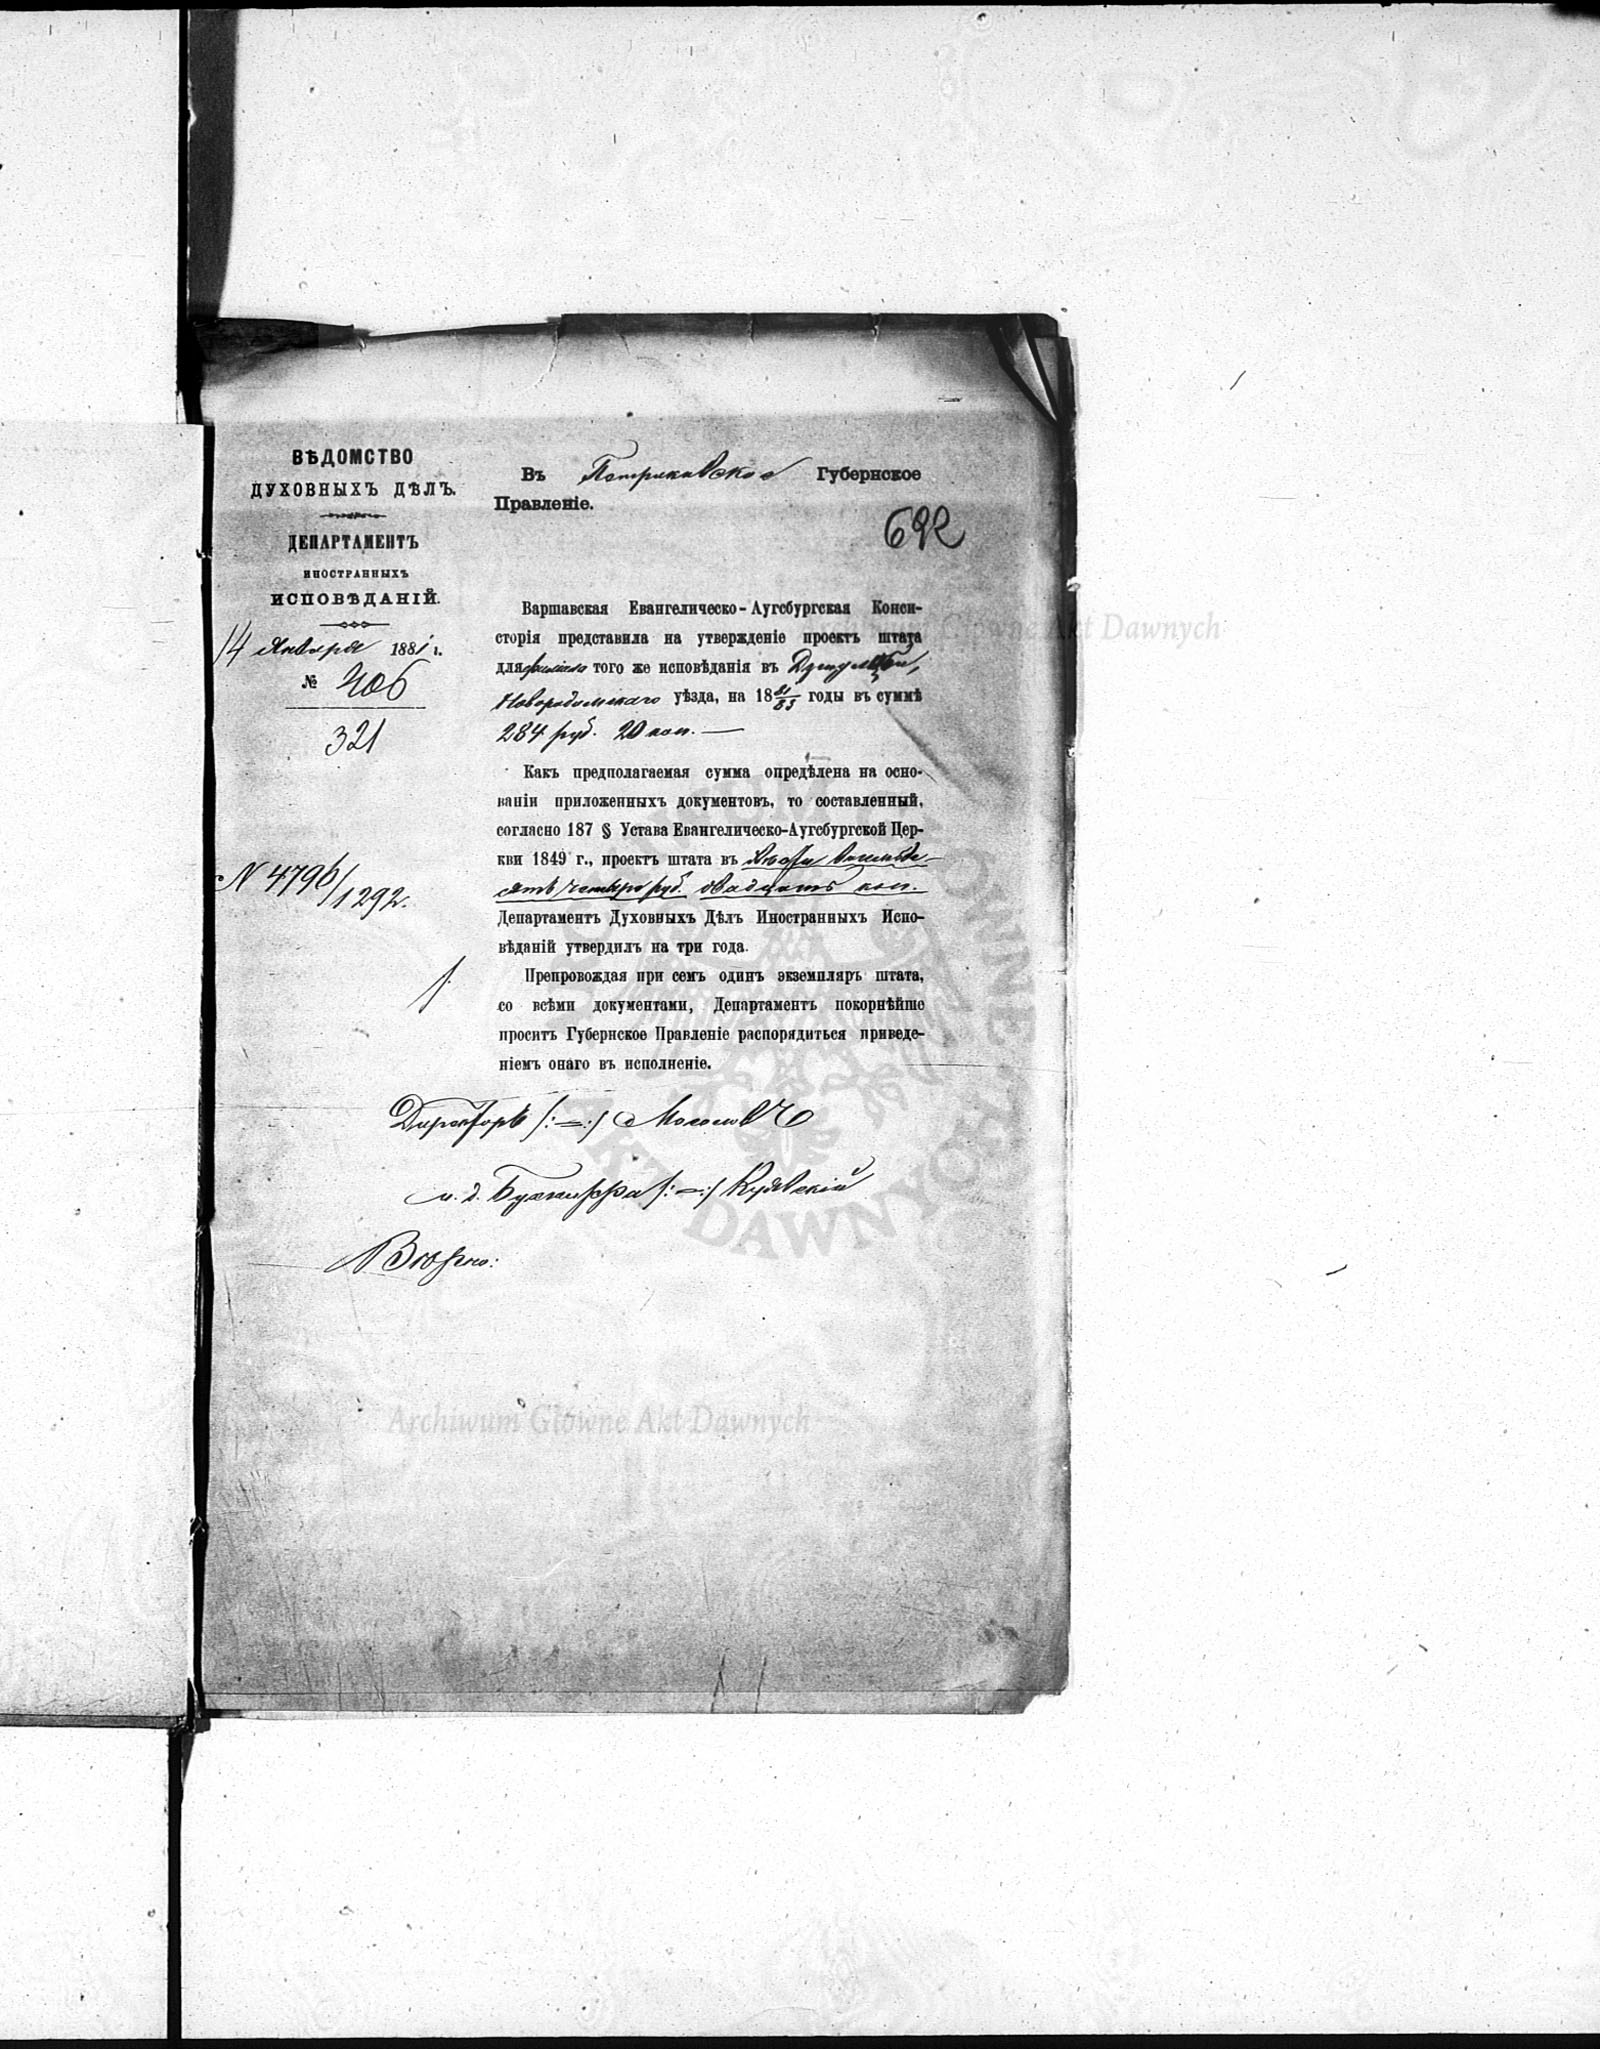 ВѢДОМСТВО
ДУХОВНЫХЪ ДѢЛЪ.
ДЕПАРТАМЕНТЪ
ИНОСТРАННЫХЪ
ИСПОВѢДАНІЙ.
14 Января 1881 г.
№ 406
321
N 4796/1292.
Въ Петроковское Губернское
Правленіе.
692
Варшавская Евангелическо-Аугсбургская Конси-
сторія представила на утвержденіе проектъ штата
для филіала того же исповѣданія въ
Новорадомскаго уѣзда, на 18 81/83 годы въ суммѣ
284 руб. 20 коп. —
Какъ предполагаемая сумма опредѣлена на осно-
ваніи приложенныхъ документовъ, то составленный,
согласно 187 § Устава Евангелическо-Аугсбургской Цер-
кви 1849 г., проектъ штата въ двѣсти восемьде-
сятъ четыре руб. двадцать коп.
Департаментъ Духовныхъ Дѣлъ Иностранныхъ Испо-
вѣданій утвердилъ на три года.
Препровождая при семъ одинъ экземпляръ штата,
со всѣми документами, Департаментъ покорнѣйше
проситъ Губернское Правленіе распорядиться приведе-
ніемъ онаго въ исполненіе.
Директоръ /:-:/ Мосоловъ
и. д. /:-:/
Archiwum Główne Akt Dawnych
Archiwum Główne Akt Dawnych